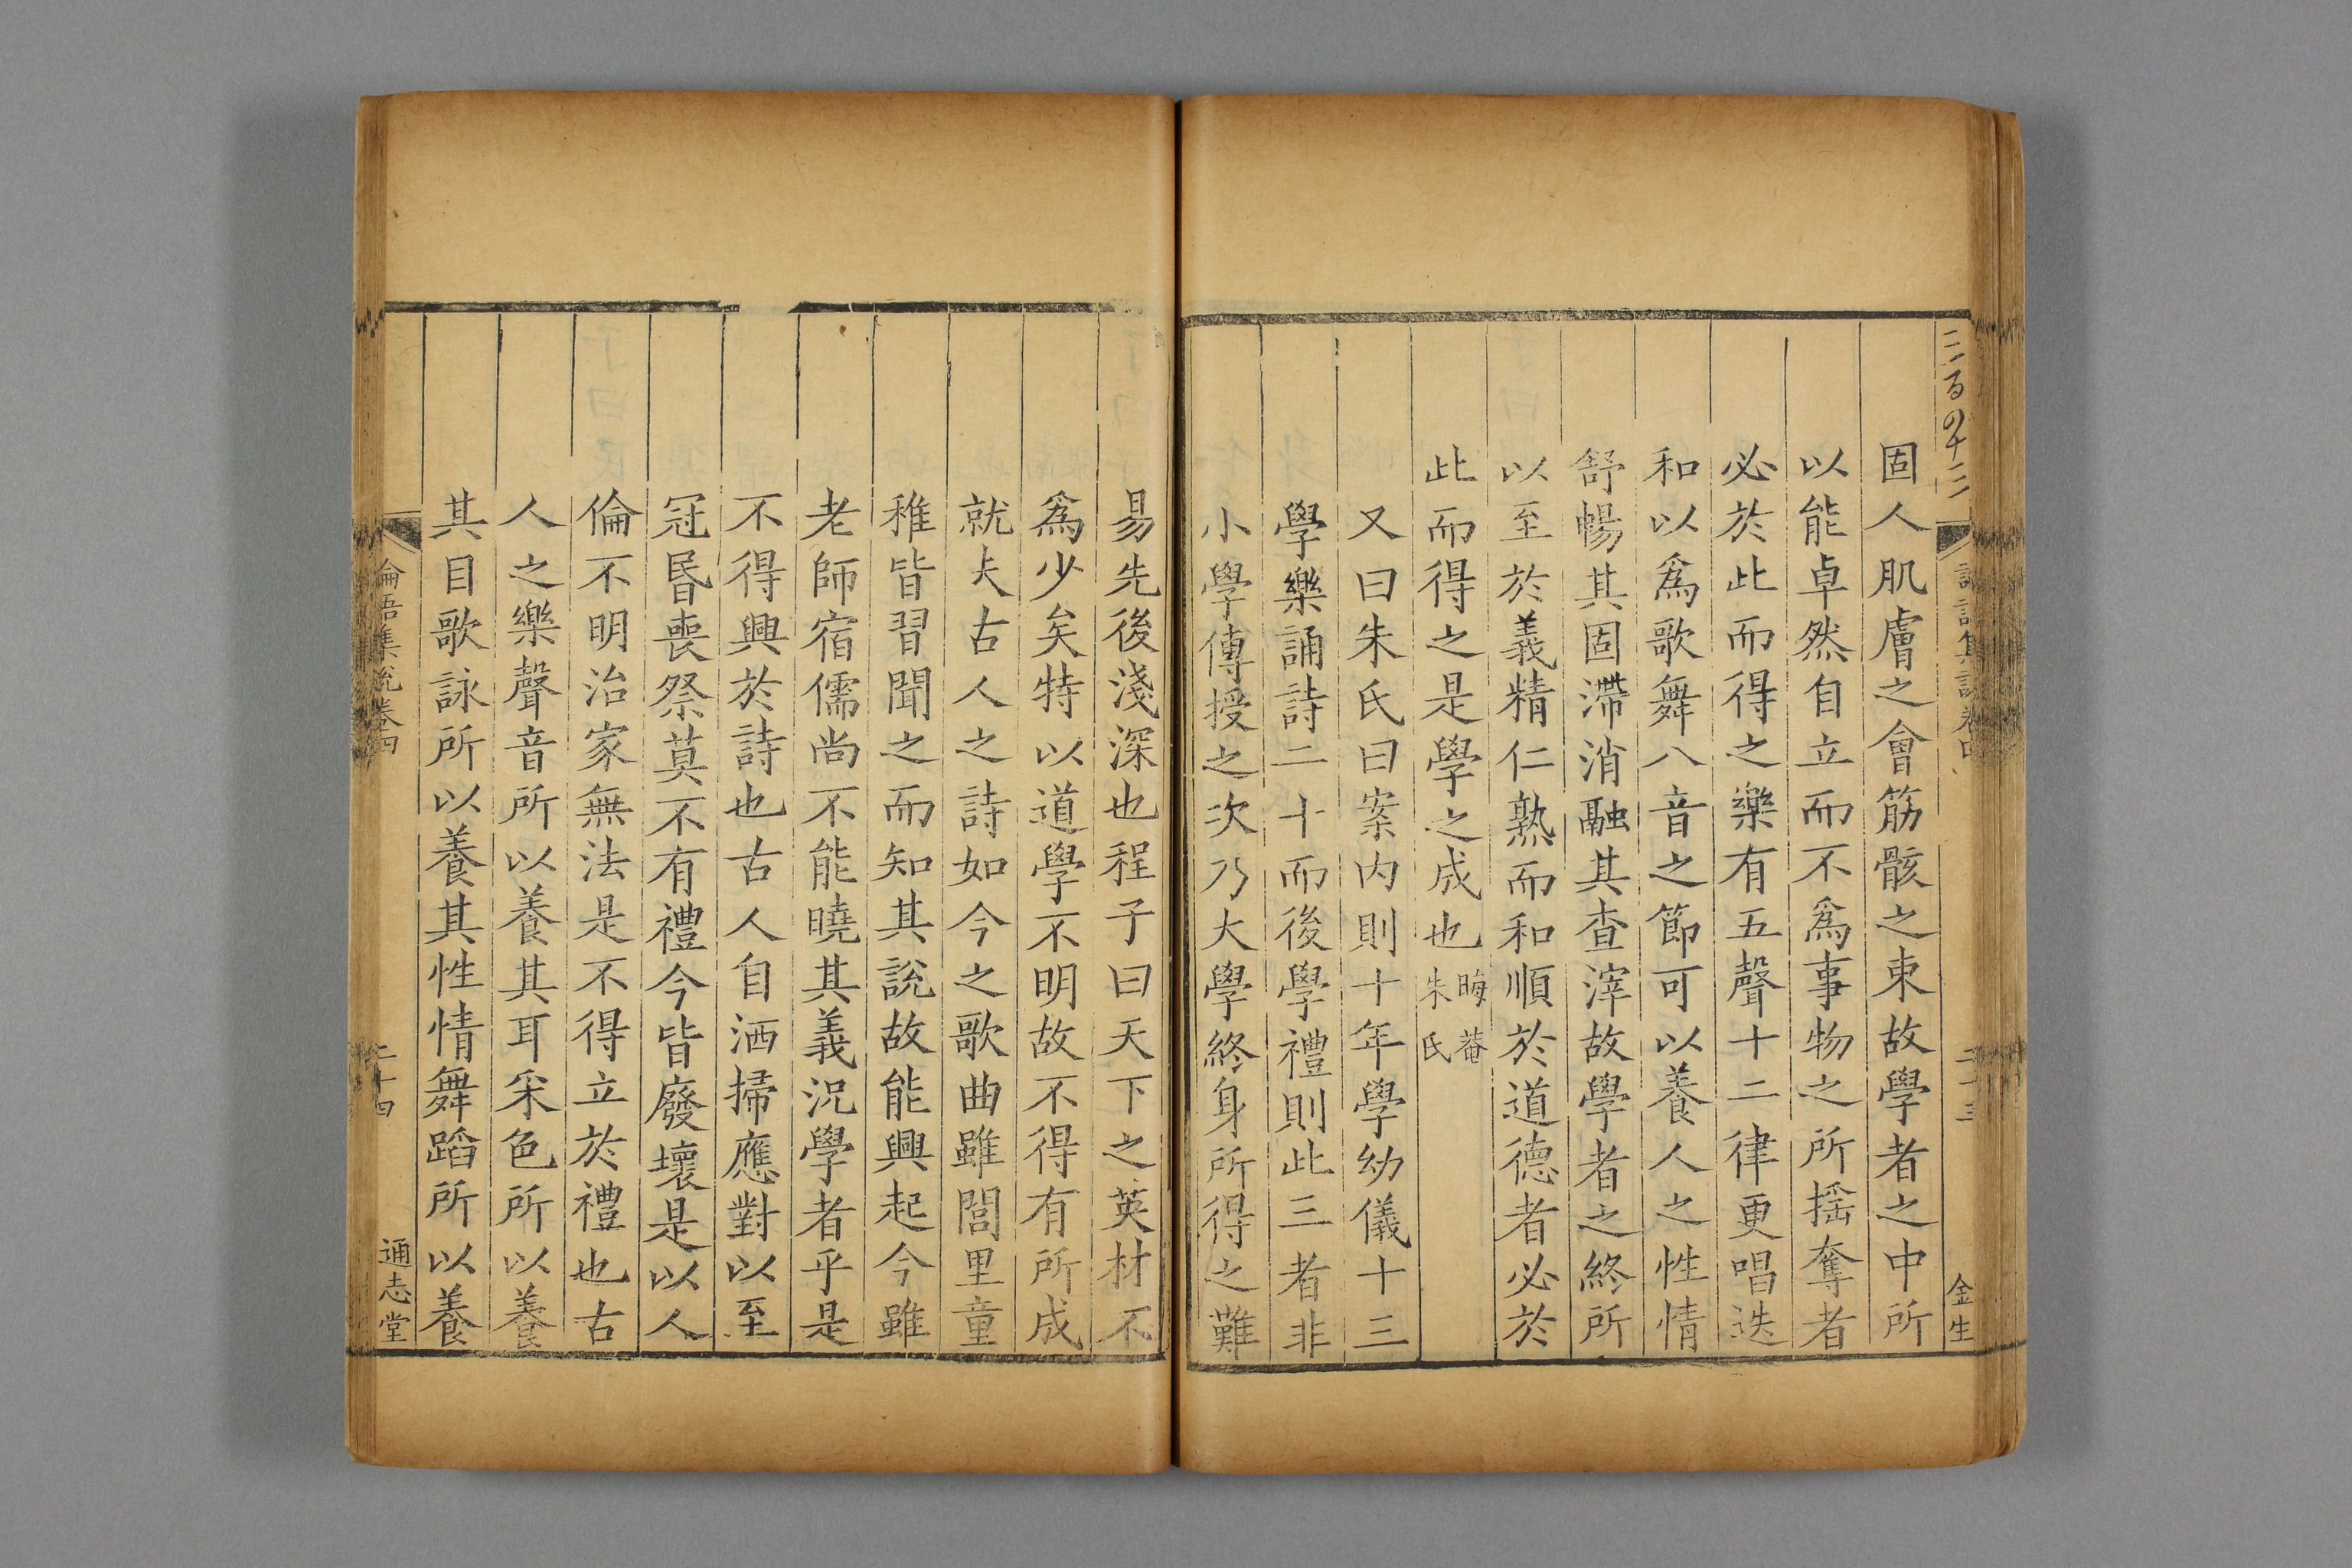 固人肌膚之會筋骸之束故學者之中所
以能卓然自立而不爲事物之所揺奪者
必於此而得之樂有五聲十二律更唱迭
和以爲歌舞八音之節可以養人之性情
舒暢其固滯消融其查滓故學者之終所
以至於義精仁熟而和順於道德者必於
此而得之是學之成也晦菴朱氏
又曰朱氏曰案内則十年學幼儀十三
學樂誦詩二十而後學禮則此三者非
小學傳授之次乃大學終身所得之難
易先後淺深也程子曰天下之英材不
爲少矣特以道學不明故不得有所成
就夫古人之詩如今之歌曲雖閭里童
稚皆習聞之而知其說故能興起今雖
老師宿儒尚不能曉其義況學者乎是
不得興於詩也古人自洒掃應對以至
冠昬喪祭莫不有禮今皆廢壞是以人
倫不明治家無法是不得立於禮也古
人之樂聲音所以養其耳采色所以養
其目歌詠所以養其性情舞蹈所以養
論語集說卷四
二十四
通志堂
二十三
金生